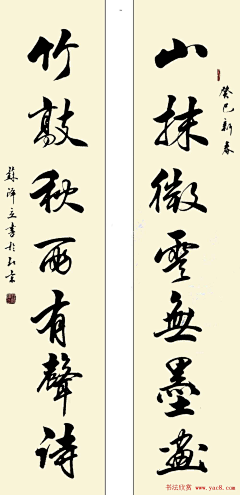 癸巳新春
山抹微雲無墨畫
竹敲秋雨有聲詩
蘇澤立書於北京
书法欣赏
www.yac8.com